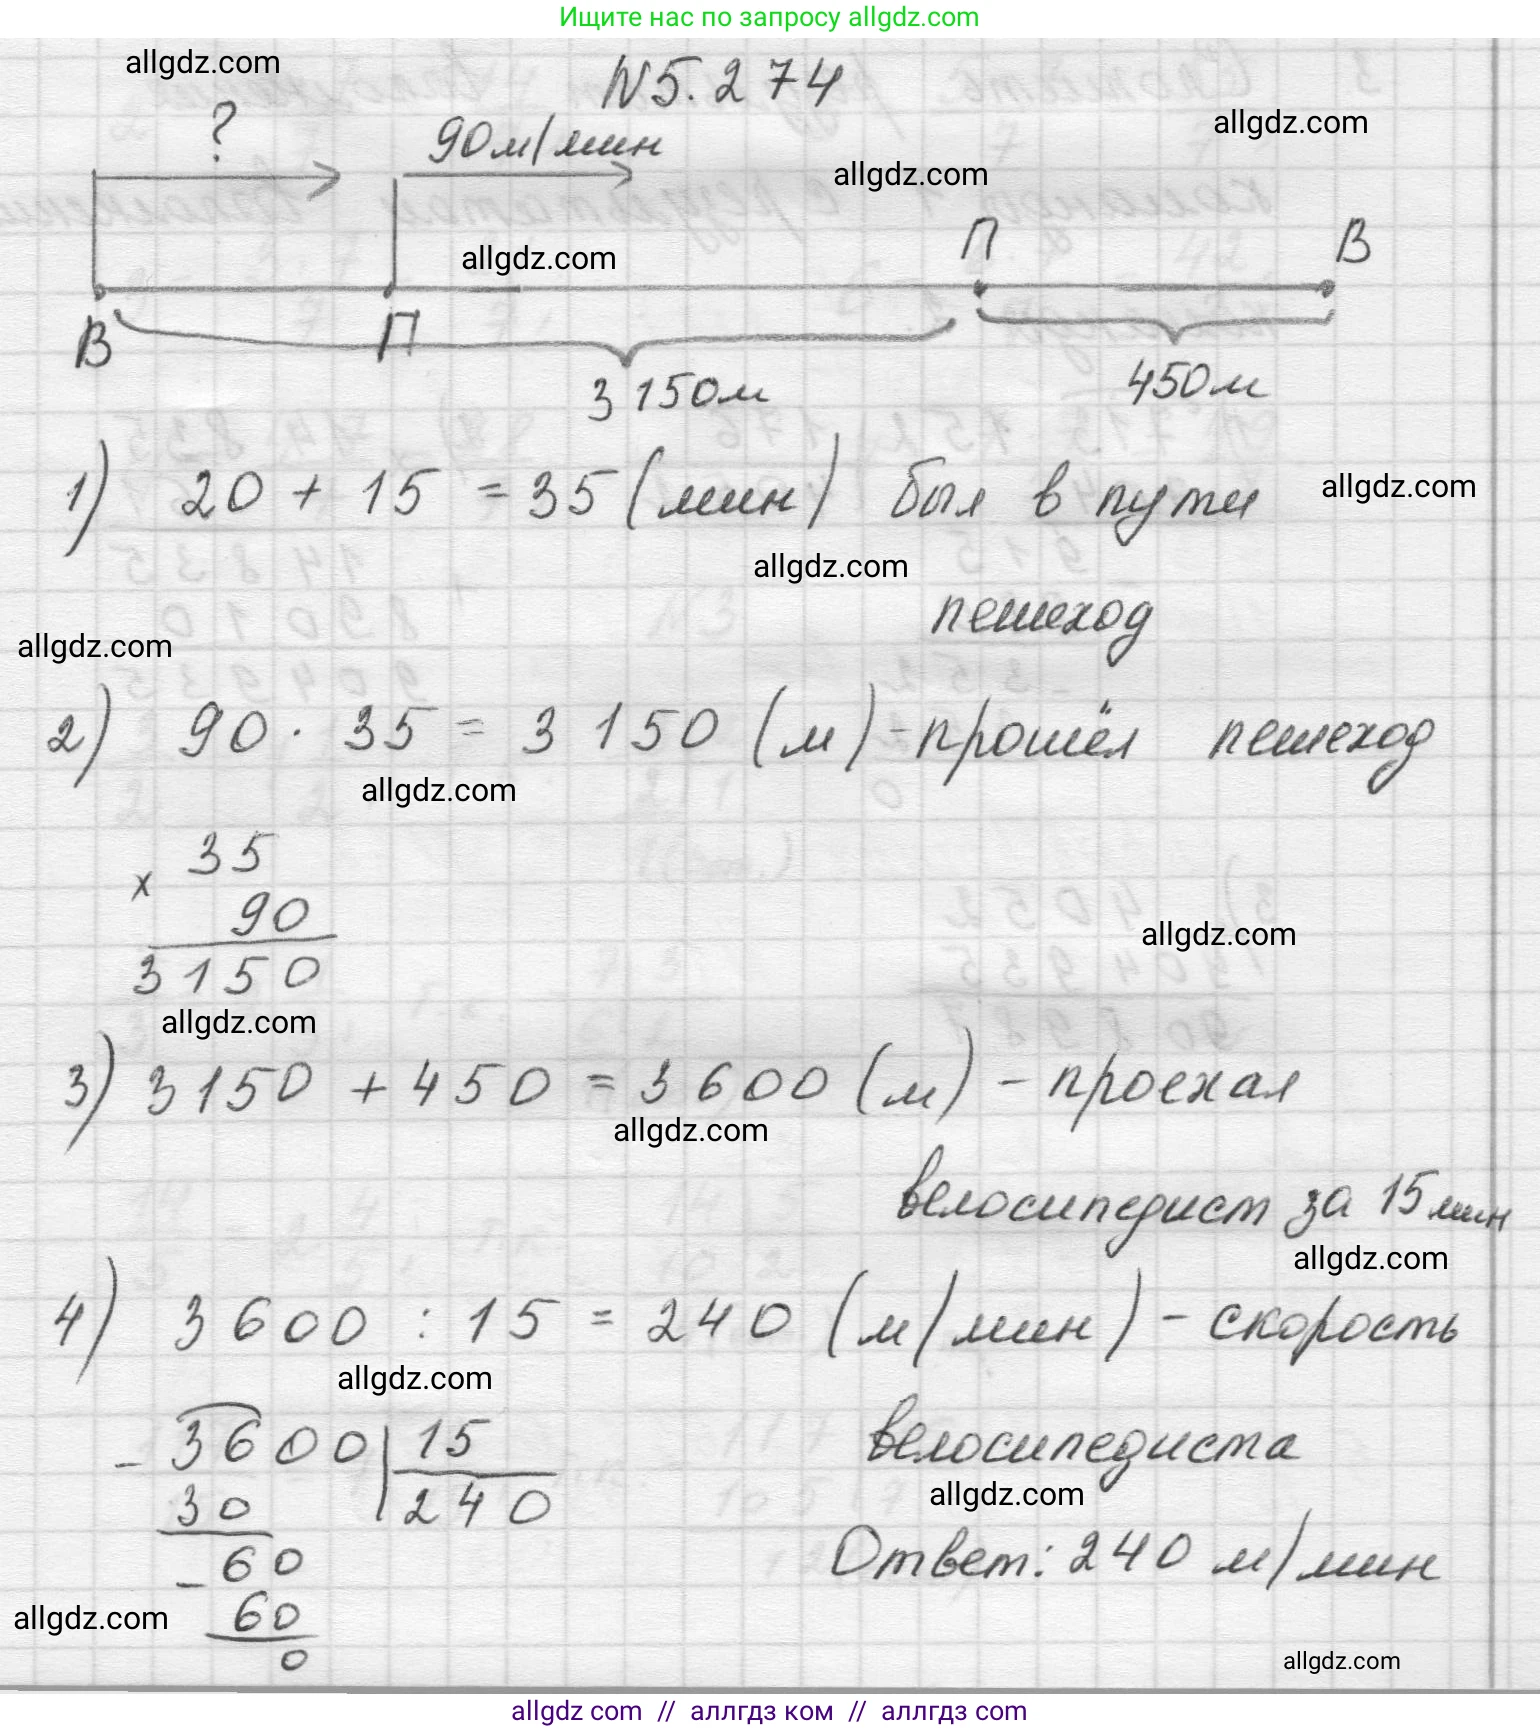 Ищите нас по запросу allgdz.com
allgdz.com
N5.274
? 90м/мин
allgdz.com
allgdz.com
allgdz.com
П В
В П
3 150м 450м
1) 20 + 15 = 35 (мин) был в пути
allgdz.com
allgdz.com
пешеход
allgdz.com
2) 90 · 35 = 3 150 (м) - прошёл пешеход
allgdz.com
35
x 90
3150
allgdz.com
allgdz.com
3) 3150 + 450 = 3600 (м) - проехал
allgdz.com
велосипедист за 15 мин
allgdz.com
4) 3600 : 15 = 240 (м/мин) - скорость
allgdz.com
велосипедиста
- 3600 | 15
30 240
allgdz.com
- 60
Ответ: 240 м/мин
60
allgdz.com
0
allgdz.com
allgdz com // аллгдз ком // аллгдз com